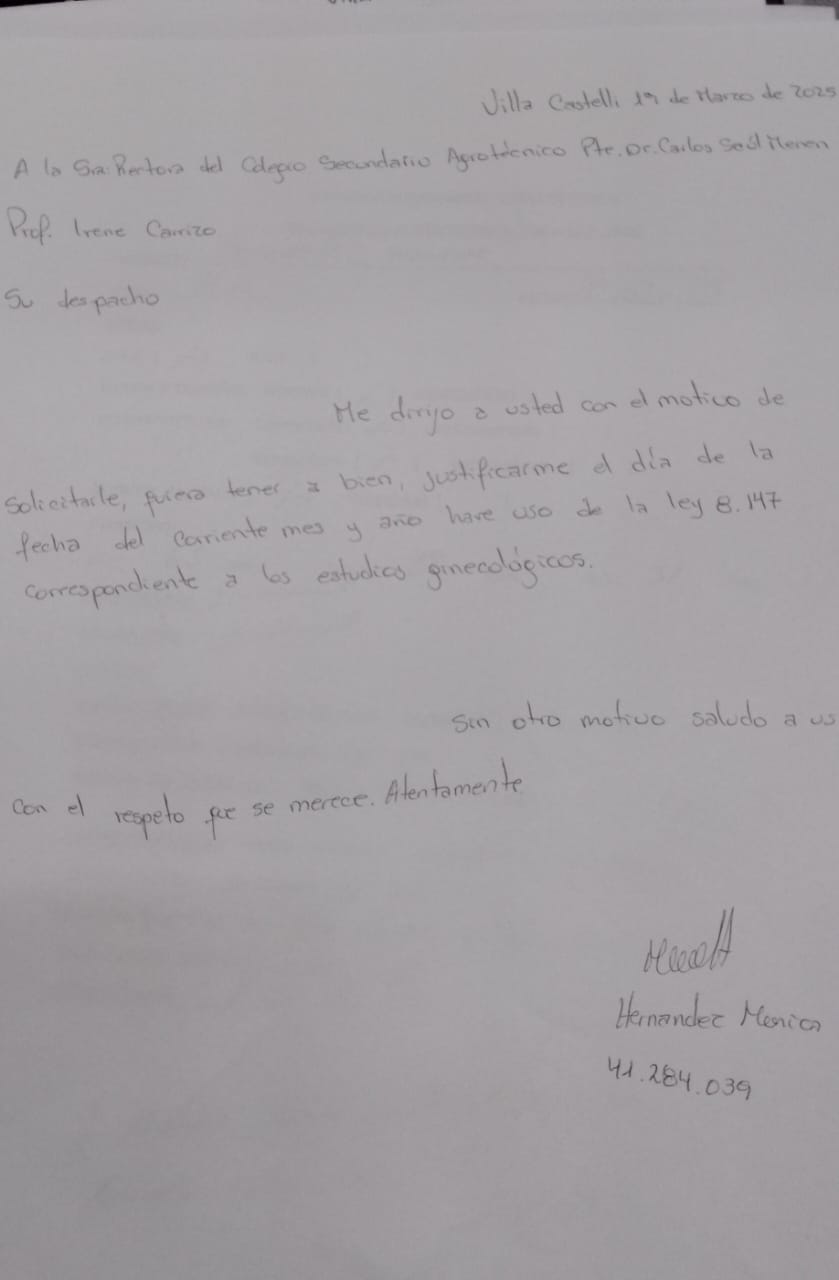 Villa Castelli 19 de Marzo de 2025
A la Sra: Rectora del Colegio Secundario Agrotécnico Pte. Dr. Carlos Saúl Menen
Prof. Irene Carrizo
Su despacho
Me dirijo a usted con el motivo de
Solicitarle, quiera tener a bien, justificarme el día de la
fecha del corriente mes y año hare uso de la ley 8.147
correspondiente a los estudios ginecológicos.
Sin otro motivo saludo a us
Con el respeto que se merece. Atentamente
Hernandez Monica
41.284.039